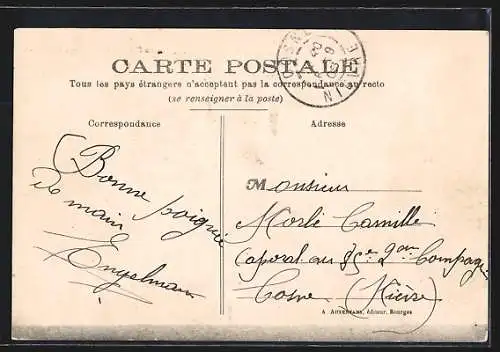 CARTE POSTALE
Tous les pays étrangers n'acceptant pas la correspondance au recto
(se renseigner à la poste)
Correspondance
Adresse
Bonne poignée
de main
Engelmann
Monsieur
Morlé Camille
Caporal au 85e 2em Compagie
Cosne (Nièvre)
A. AUXENFANS, éditeur, Bourges
COSNE
NIEVRE